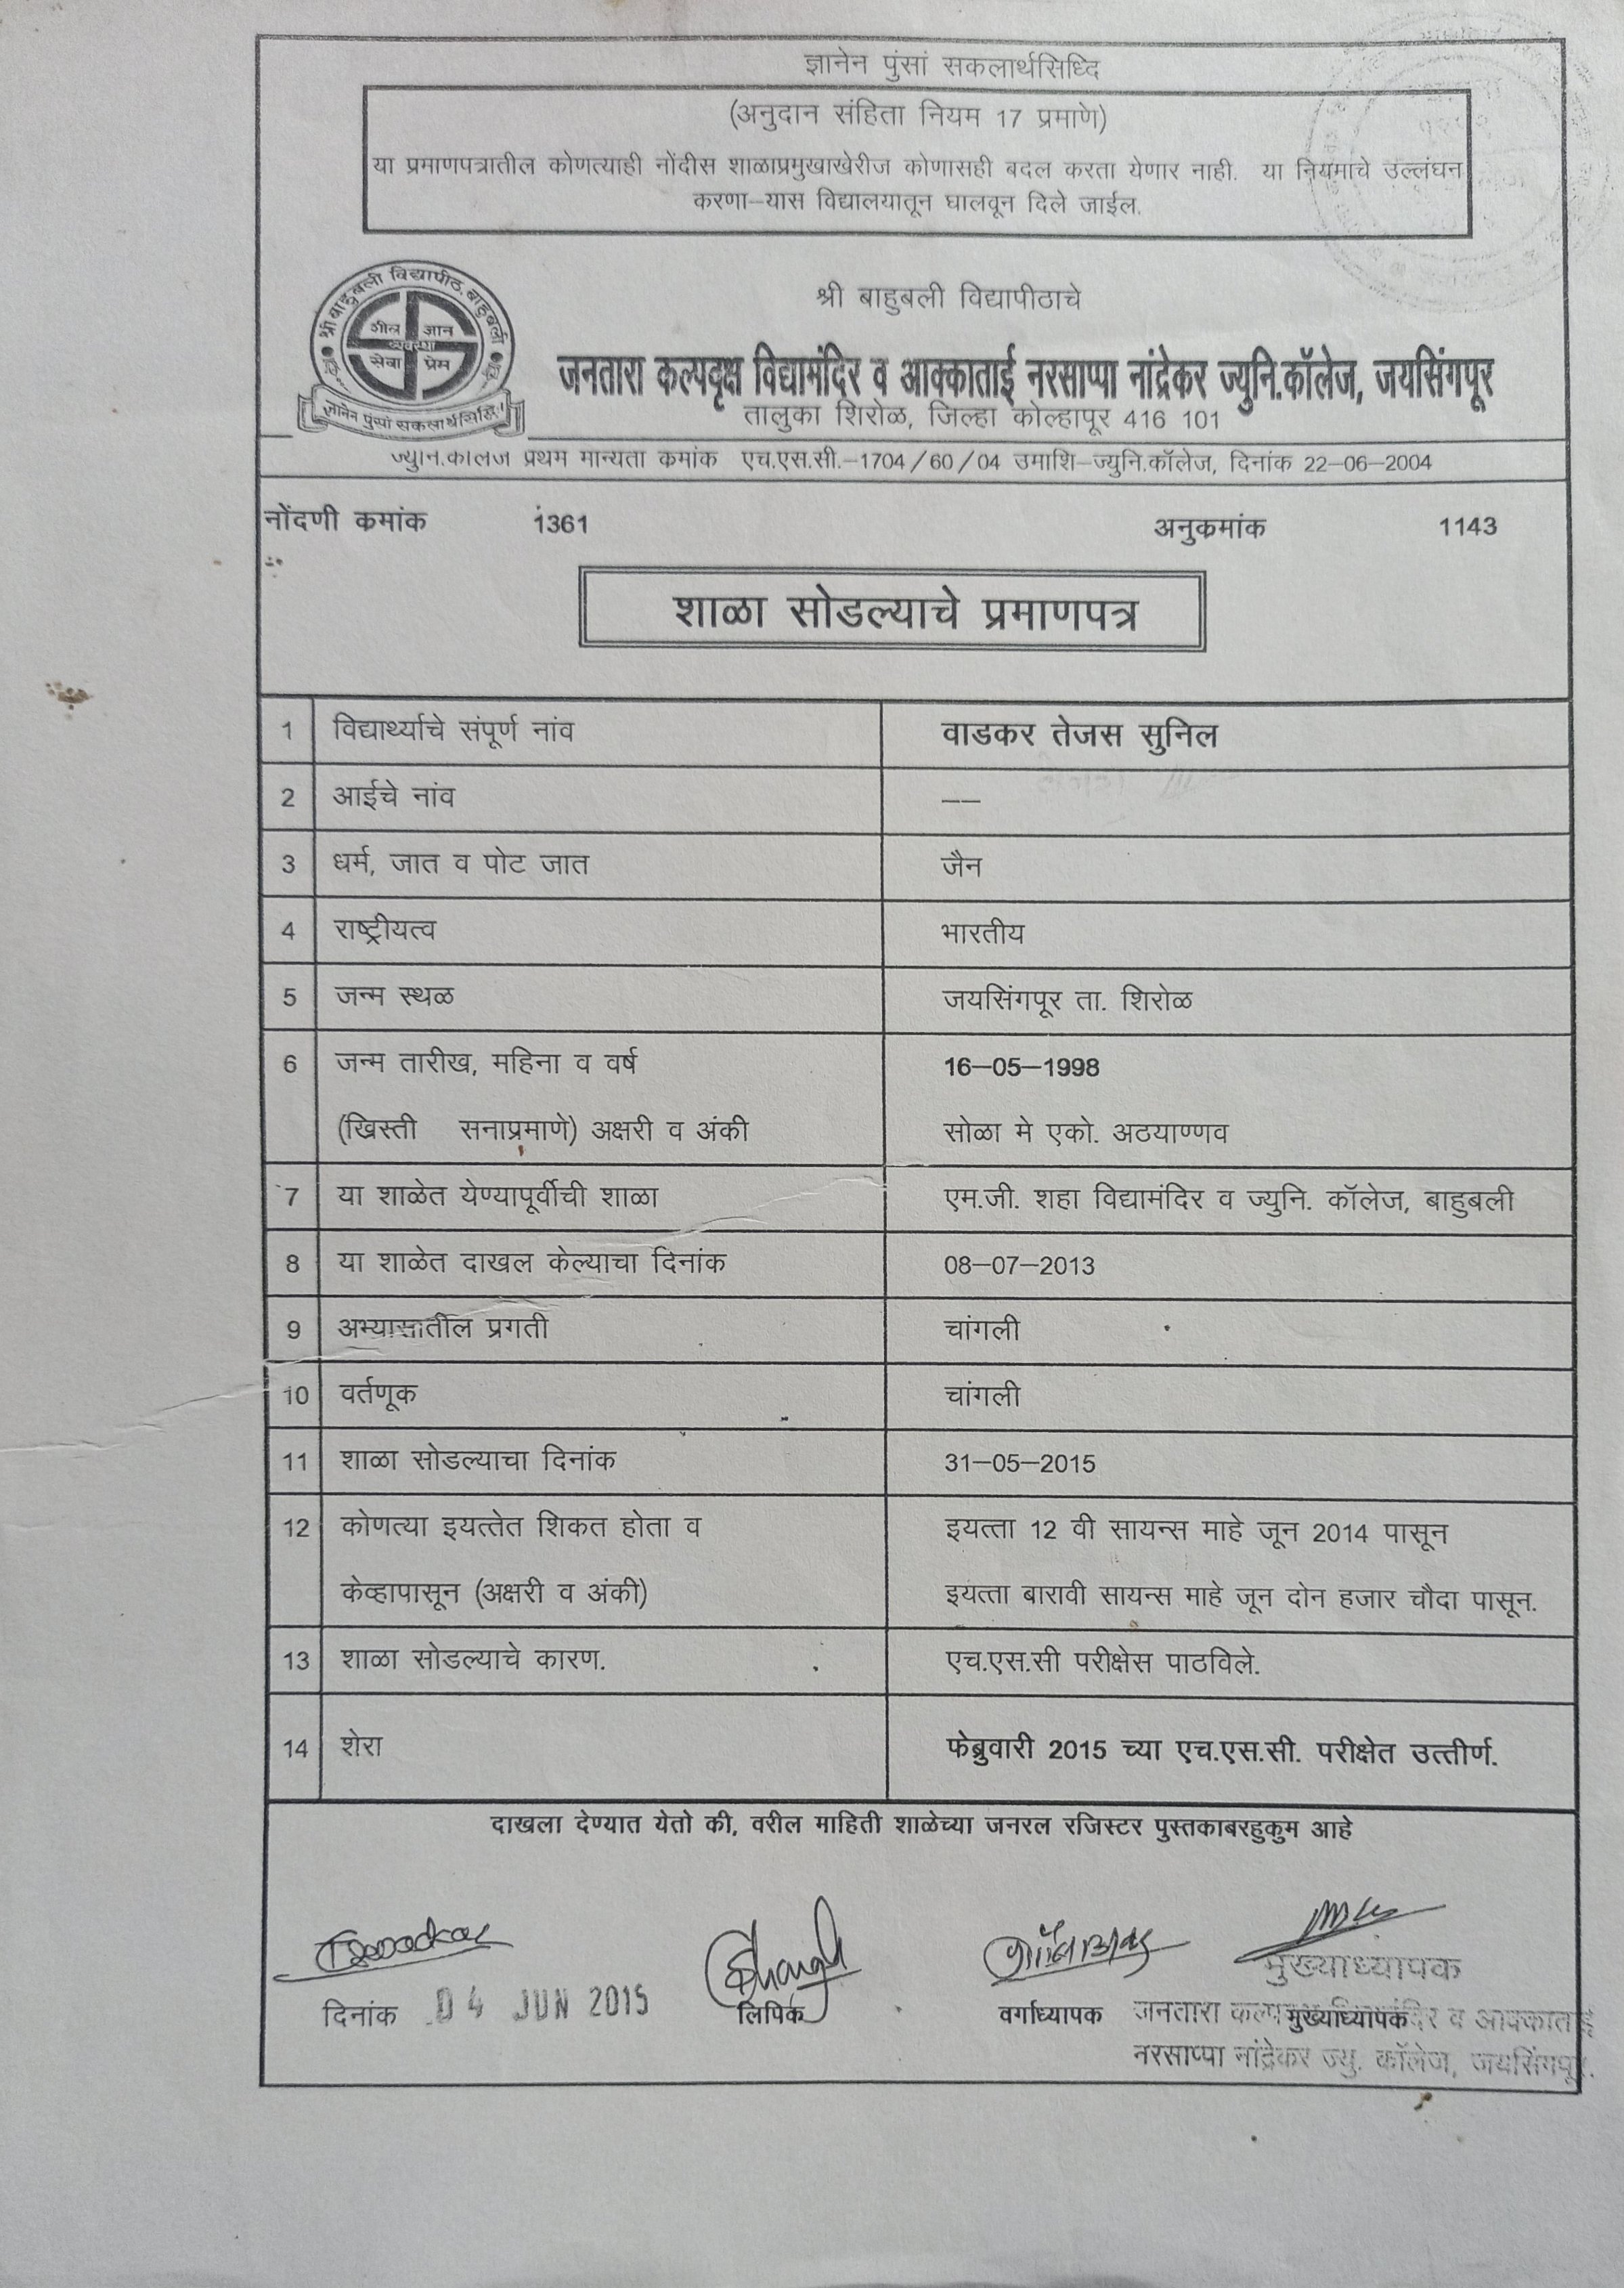 ज्ञानेन पुंसां सकलार्थसिध्दि
(अनुदान संहिता नियम 17 प्रमाणे)
या प्रमाणपत्रातील कोणत्याही नोंदीस शाळाप्रमुखाखेरीज कोणासही बदल करता येणार नाही. या नियमाचे उल्लंघन
करणा–यास विद्यालयातून घालवून दिले जाईल.
श्री बाहुबली विद्यापीठ, बाहुबली
शील ज्ञान
व्यवस्था
सेवा प्रेम
ज्ञानेन पुंसां सकलार्थसिद्धिः।
श्री बाहुबली विद्यापीठाचे
जनतारा कल्पवृक्ष विद्यामंदिर व आक्काताई नरसाप्पा नांद्रेकर ज्युनि.कॉलेज, जयसिंगपूर
तालुका शिरोळ, जिल्हा कोल्हापूर 416 101
ज्युनि.कालेज प्रथम मान्यता कमांक एच.एस.सी.–1704/60/04 उमाशि–ज्युनि.कॉलेज, दिनांक 22–06–2004
नोंदणी कमांक 1361 अनुकमांक 1143
शाळा सोडल्याचे प्रमाणपत्र
1 विद्यार्थ्याचे संपूर्ण नांव वाडकर तेजस सुनिल
2 आईचे नांव ––
3 धर्म, जात व पोट जात जैन
4 राष्ट्रीयत्व भारतीय
5 जन्म स्थळ जयसिंगपूर ता. शिरोळ
6 जन्म तारीख, महिना व वर्ष 16–05–1998
(खिस्ती सनाप्रमाणे) अक्षरी व अंकी सोळा मे एको. अठयाण्णव
7 या शाळेत येण्यापूर्वीची शाळा एम.जी. शहा विद्यामंदिर व ज्युनि. कॉलेज, बाहुबली
8 या शाळेत दाखल केल्याचा दिनांक 08–07–2013
9 अभ्यासातील प्रगती चांगली
10 वर्तणूक चांगली
11 शाळा सोडल्याचा दिनांक 31–05–2015
12 कोणत्या इयत्तेत शिकत होता व इयत्ता 12 वी सायन्स माहे जून 2014 पासून
केव्हापासून (अक्षरी व अंकी) इयत्ता बारावी सायन्स माहे जून दोन हजार चौदा पासून.
13 शाळा सोडल्याचे कारण. एच.एस.सी परीक्षेस पाठविले.
14 शेरा फेब्रुवारी 2015 च्या एच.एस.सी. परीक्षेत उत्तीर्ण.
दाखला देण्यात येतो की, वरील माहिती शाळेच्या जनरल रजिस्टर पुस्तकाबरहुकुम आहे
मुख्याध्यापक
दिनांक 04 JUN 2015 लिपिक वर्गाध्यापक मुख्याध्यापक
नरसाप्पा नांद्रेकर ज्यु. कॉलेज, जयसिंगपूर.